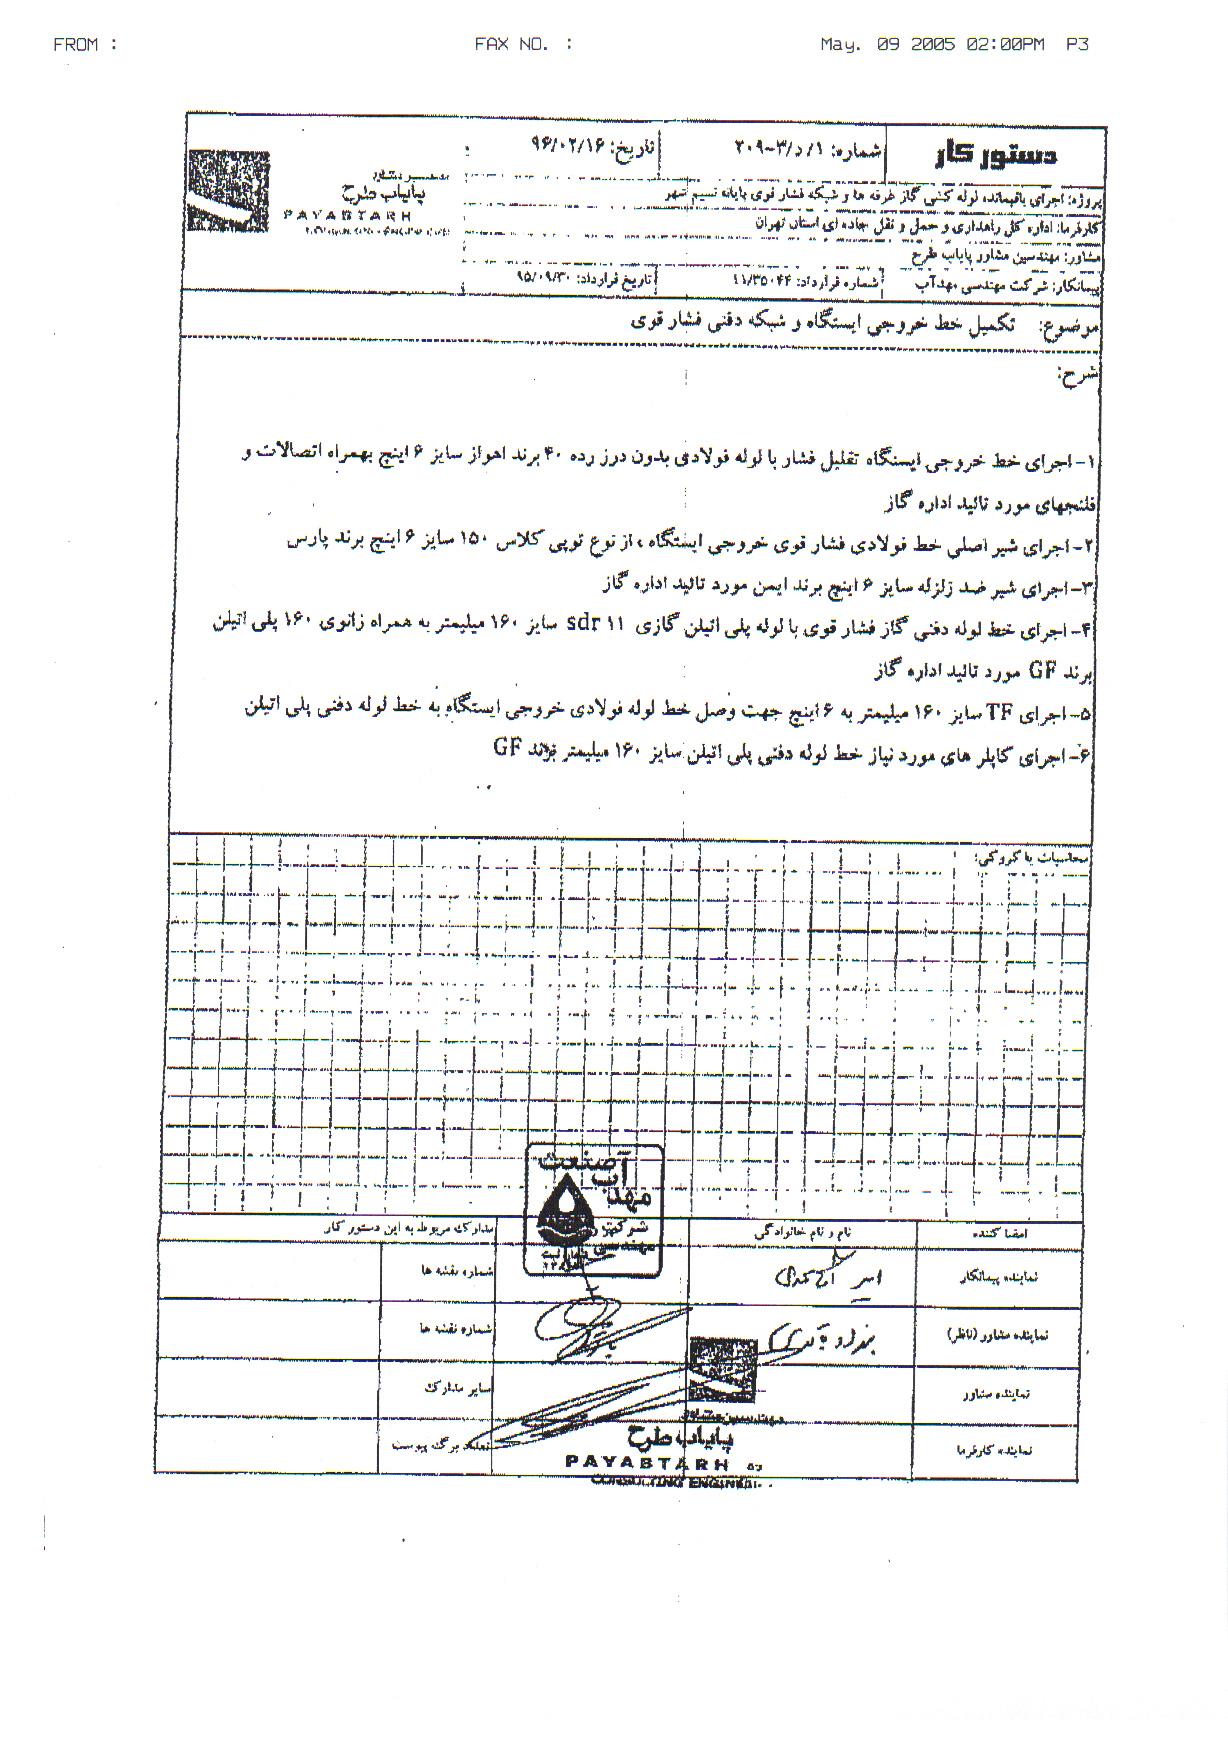 FROM :
FAX NO. :
May. 09 2005 02:00PM P3
دستور کار
شماره: ۱/د/۳-۲۰۹
تاریخ: ۹۶/۰۲/۱۶
پایاب طرح
PAYABTARH
پروژه: اجرای باقیمانده لوله کشی گاز غرفه ها و شبکه فشار قوی پایانه نسیم شهر
کارفرما: اداره کل راهداری و حمل و نقل جاده ای استان تهران
مشاور: مهندسین مشاور پایاب طرح
پیمانکار: شرکت مهندسی مهدآب
شماره قرارداد: ۱۱/۳۵۰۴۴
تاریخ قرارداد: ۹۵/۰۹/۳۰
موضوع: تکمیل خط خروجی ایستگاه و شبکه دفنی فشار قوی
شرح:
۱- اجرای خط خروجی ایستگاه تقلیل فشار با لوله فولادی بدون درز رده ۴۰ برند اهواز سایز ۶ اینچ بهمراه اتصالات و
فلنجهای مورد تائید اداره گاز
۲- اجرای شیر اصلی خط فولادی فشار قوی خروجی ایستگاه ، از نوع توپی کلاس ۱۵۰ سایز ۶ اینچ برند پارس
۳- اجرای شیر ضد زلزله سایز ۶ اینچ برند ایمن مورد تائید اداره گاز
۴- اجرای خط لوله دفنی گاز فشار قوی با لوله پلی اتیلن گازی sdr ۱۱ سایز ۱۶۰ میلیمتر به همراه زانوی ۱۶۰ پلی اتیلن
برند GF مورد تائید اداره گاز
۵- اجرای TF سایز ۱۶۰ میلیمتر به ۶ اینچ جهت وصل خط لوله فولادی خروجی ایستگاه به خط لوله دفنی پلی اتیلن
۶- اجرای کاپلر های مورد نیاز خط لوله دفنی پلی اتیلن سایز ۱۶۰ میلیمتر برند GF
محاسبات یا کروکی:
آب صنعت
مهد
شرکت
مهندسی
امضا کننده
نام و نام خانوادگی
مدارک مربوط به این دستور کار
نماینده پیمانکار
شماره نقشه ها
نماینده مشاور (ناظر)
شماره نقشه ها
نماینده مشاور
سایر مدارک
نماینده کارفرما
تعداد برگ پیوست
پایاب طرح
PAYABTARH